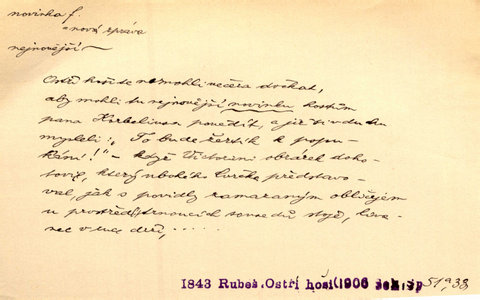 novinka f.
= nová zpráva
nejnovější
Ostří hoši se nemohli večera dočkat,
aby mohli tu nejnovější novinku hostům
pana Kirbelivan povědít, a již si v duchu
mysleli: „To bude žertík k popu-
kání!" – když Victorini obrázek doho-
tovil, který ubohého Cvrčka představo-
val, jak s povidly zamazaným obličejem
u prostřed trnoucích sousedů stojí, láva-
nec v ruce drží, . . . . .
1843 Rubeš. Ostří hoši (1906 51a, 38